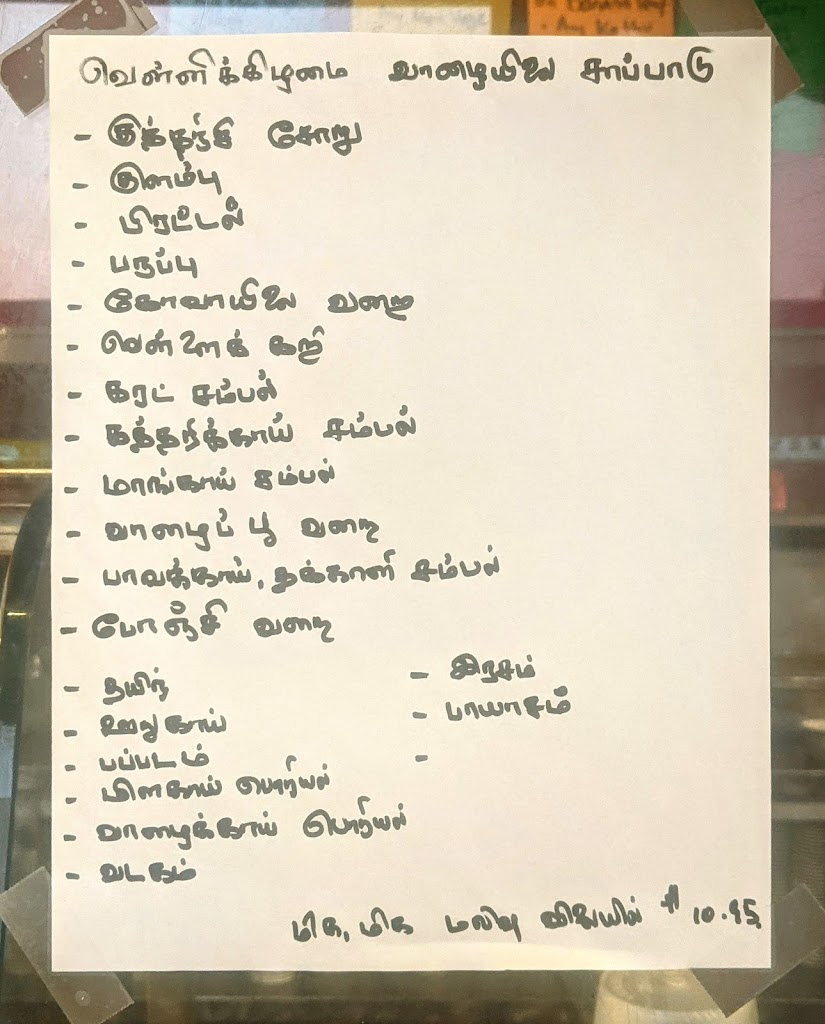 வெள்ளிக்கிழமை வாழையிலை சாப்பாடு
- குத்தரிசி சோறு
- குளம்பு
- பிரட்டல்
- பருப்பு
- கோவாயிலை வறை
- வெள்ளைக் கறி
- கரட் சம்பல்
- கத்தரிக்காய் சம்பல்
- மாங்காய் சம்பல்
- வாழைப் பூ வறை
- பாவக்காய், தக்காளி சம்பல்
- போஞ்சி வறை
- தயிர்
- ஊறுகாய்
- பப்படம்
- மிளகாய் பொரியல்
- வாழைக்காய் பொரியல்
- வடகம்
- இரசம்
- பாயாசம்
-
மிக, மிக மலிவு விலையில் $ 10.95